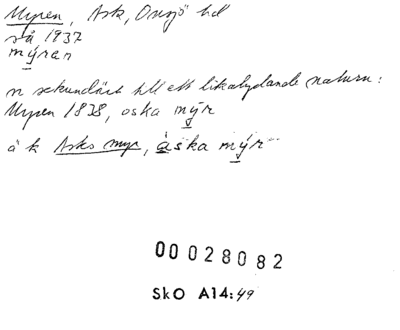 Myren, Ask, Onsjö hd
stå 1937
mýran
n sekundärt till ett likalydande naturn:
Myren 1838, oska mýr
å k Asks myr, åska mýr
00028082
SkO A14:49